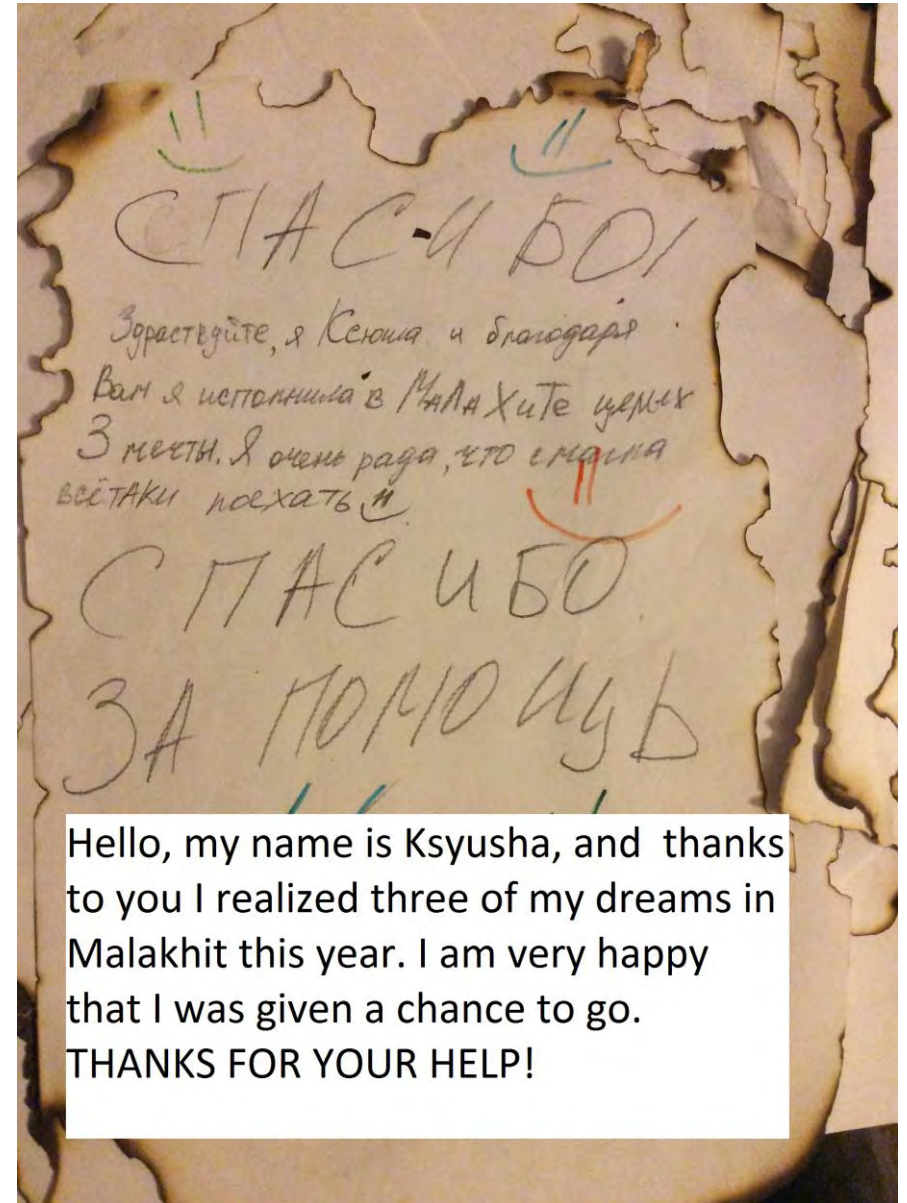 СПАС-И БО!
Здраствуйте, я Ксюша и благодаря
Вам я исполнила в МАЛАХИТе целых
3 мечты. Я очень рада, что смогла
всёТАКИ поехать
СПАСИБО
ЗА ПОМОЩЬ
Hello, my name is Ksyusha, and thanks
to you I realized three of my dreams in
Malakhit this year. I am very happy
that I was given a chance to go.
THANKS FOR YOUR HELP!